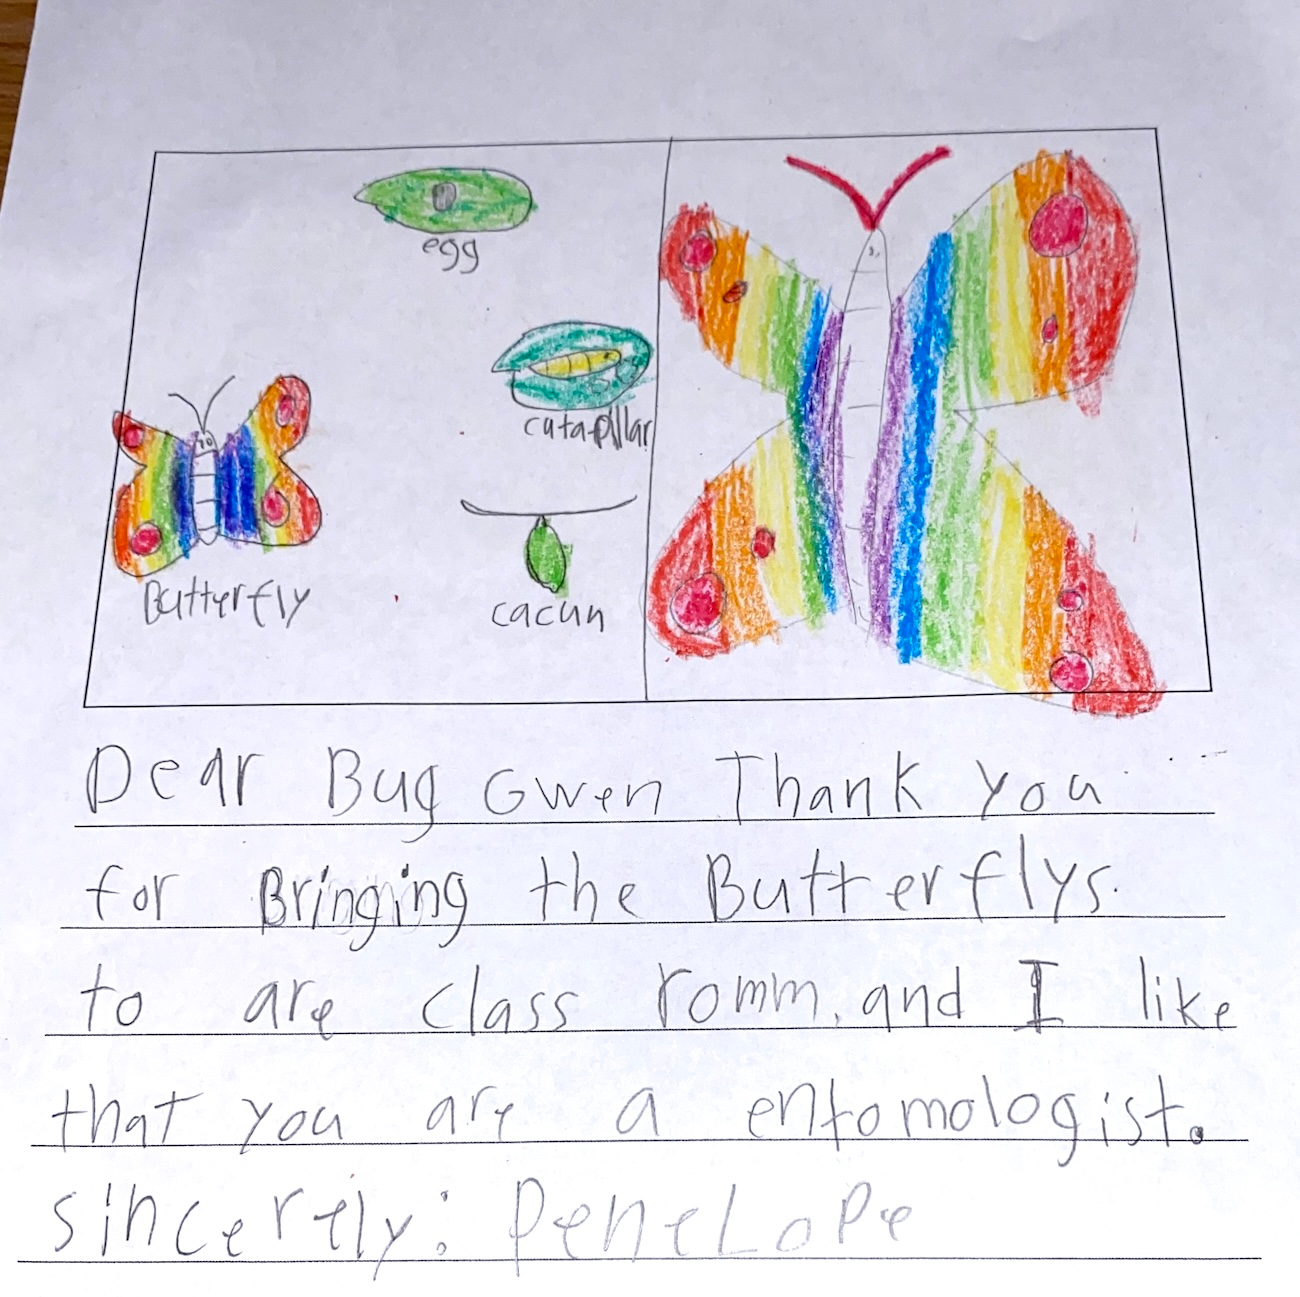 egg
catapillar
Butterfly
cacun
Dear Bug Gwen Thank you
for Bringing the Butterflys.
to are class romm. and I like
that you are a entomologist.
sincerely: peneLope